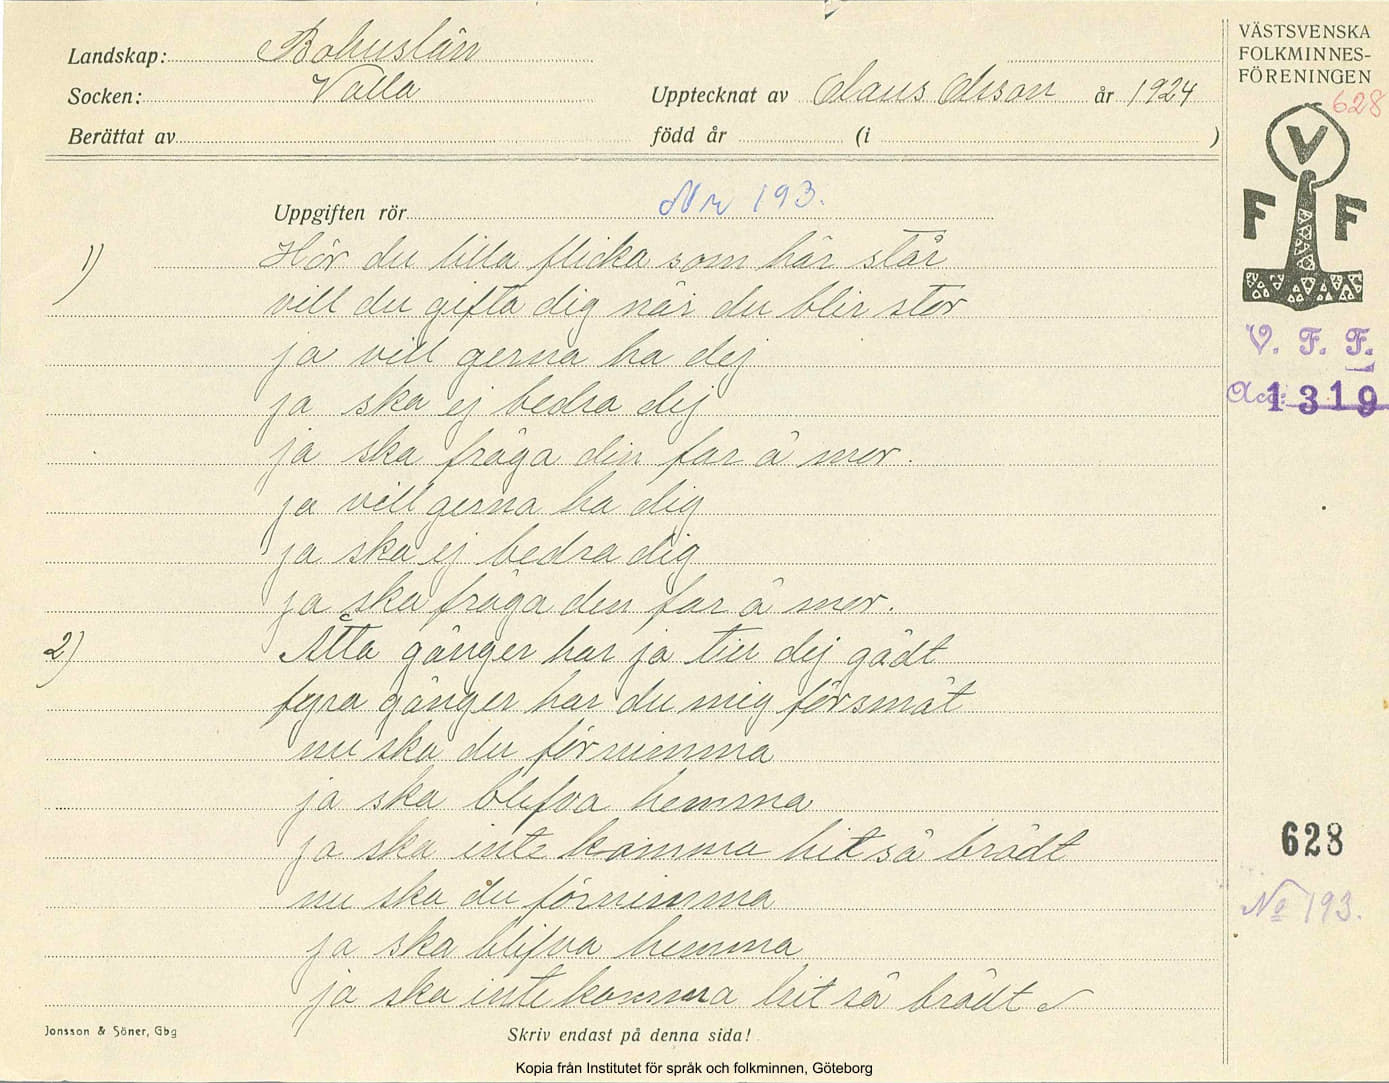 Landskap: Bohuslän
Socken: Valla
Upptecknat av Olaus Olsson år 1924
Berättat av
född år (i )
VÄSTSVENSKA
FOLKMINNES-
FÖRENINGEN
628
V
F F
V. F. F.
Acc: 1319
Uppgiften rör Nr 193.
1) Hör du lilla flicka som här står
vill du gifta dig när du blir stor
ja vill gerna ha dej
ja ska ej bedra dej
ja ska fråga din far å mor.
ja vill gerna ha dig
ja ska ej bedra dig
ja ska fråga den far å mor.
2) Åtta gånger har ja till dej gådt
fyra gånger har du mig försmåt
nu ska du förnimma
ja ska blifva hemma
ja ska inte komma hit så brådt
nu ska du förnimma
ja ska blifva hemma
ja ska inte komma hit så brådt
628
No 193.
Jonsson & Söner, Gbg
Skriv endast på denna sida!
Kopia från Institutet för språk och folkminnen, Göteborg